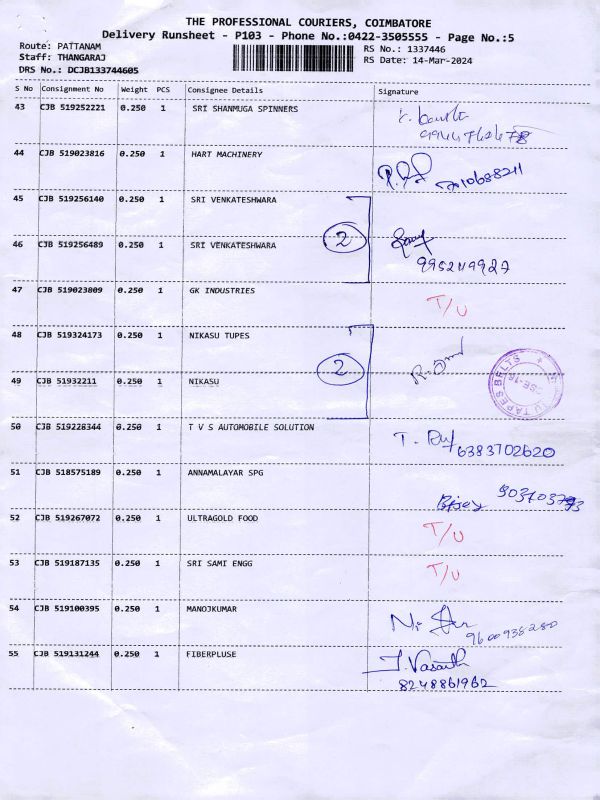 THE PROFESSIONAL COURIERS, COIMBATORE
Delivery Runsheet - P103 - Phone No.:0422-3505555 - Page No.:5
Route: PATTANAM
RS No.: 1337446
Staff: THANGARAJ
RS Date: 14-Mar-2024
DRS No.: DCJB133744605
S No Consignment No Weight PCS Consignee Details Signature
43 CJB 519252221 0.250 1 SRI SHANMUGA SPINNERS
44 CJB 519023816 0.250 1 HART MACHINERY
45 CJB 519256140 0.250 1 SRI VENKATESHWARA
2
46 CJB 519256489 0.250 1 SRI VENKATESHWARA
47 CJB 519023809 0.250 1 GK INDUSTRIES T/U
48 CJB 519324173 0.250 1 NIKASU TUPES
2
49 CJB 51932211 0.250 1 NIKASU
TAPES BELTS
50 CJB 519228344 0.250 1 T V S AUTOMOBILE SOLUTION
6383702620
51 CJB 518575189 0.250 1 ANNAMALAYAR SPG
52 CJB 519267072 0.250 1 ULTRAGOLD FOOD T/U
53 CJB 519187135 0.250 1 SRI SAMI ENGG T/U
54 CJB 519100395 0.250 1 MANOJKUMAR
9600938280
55 CJB 519131244 0.250 1 FIBERPLUSE J. Vasanth
8248861962